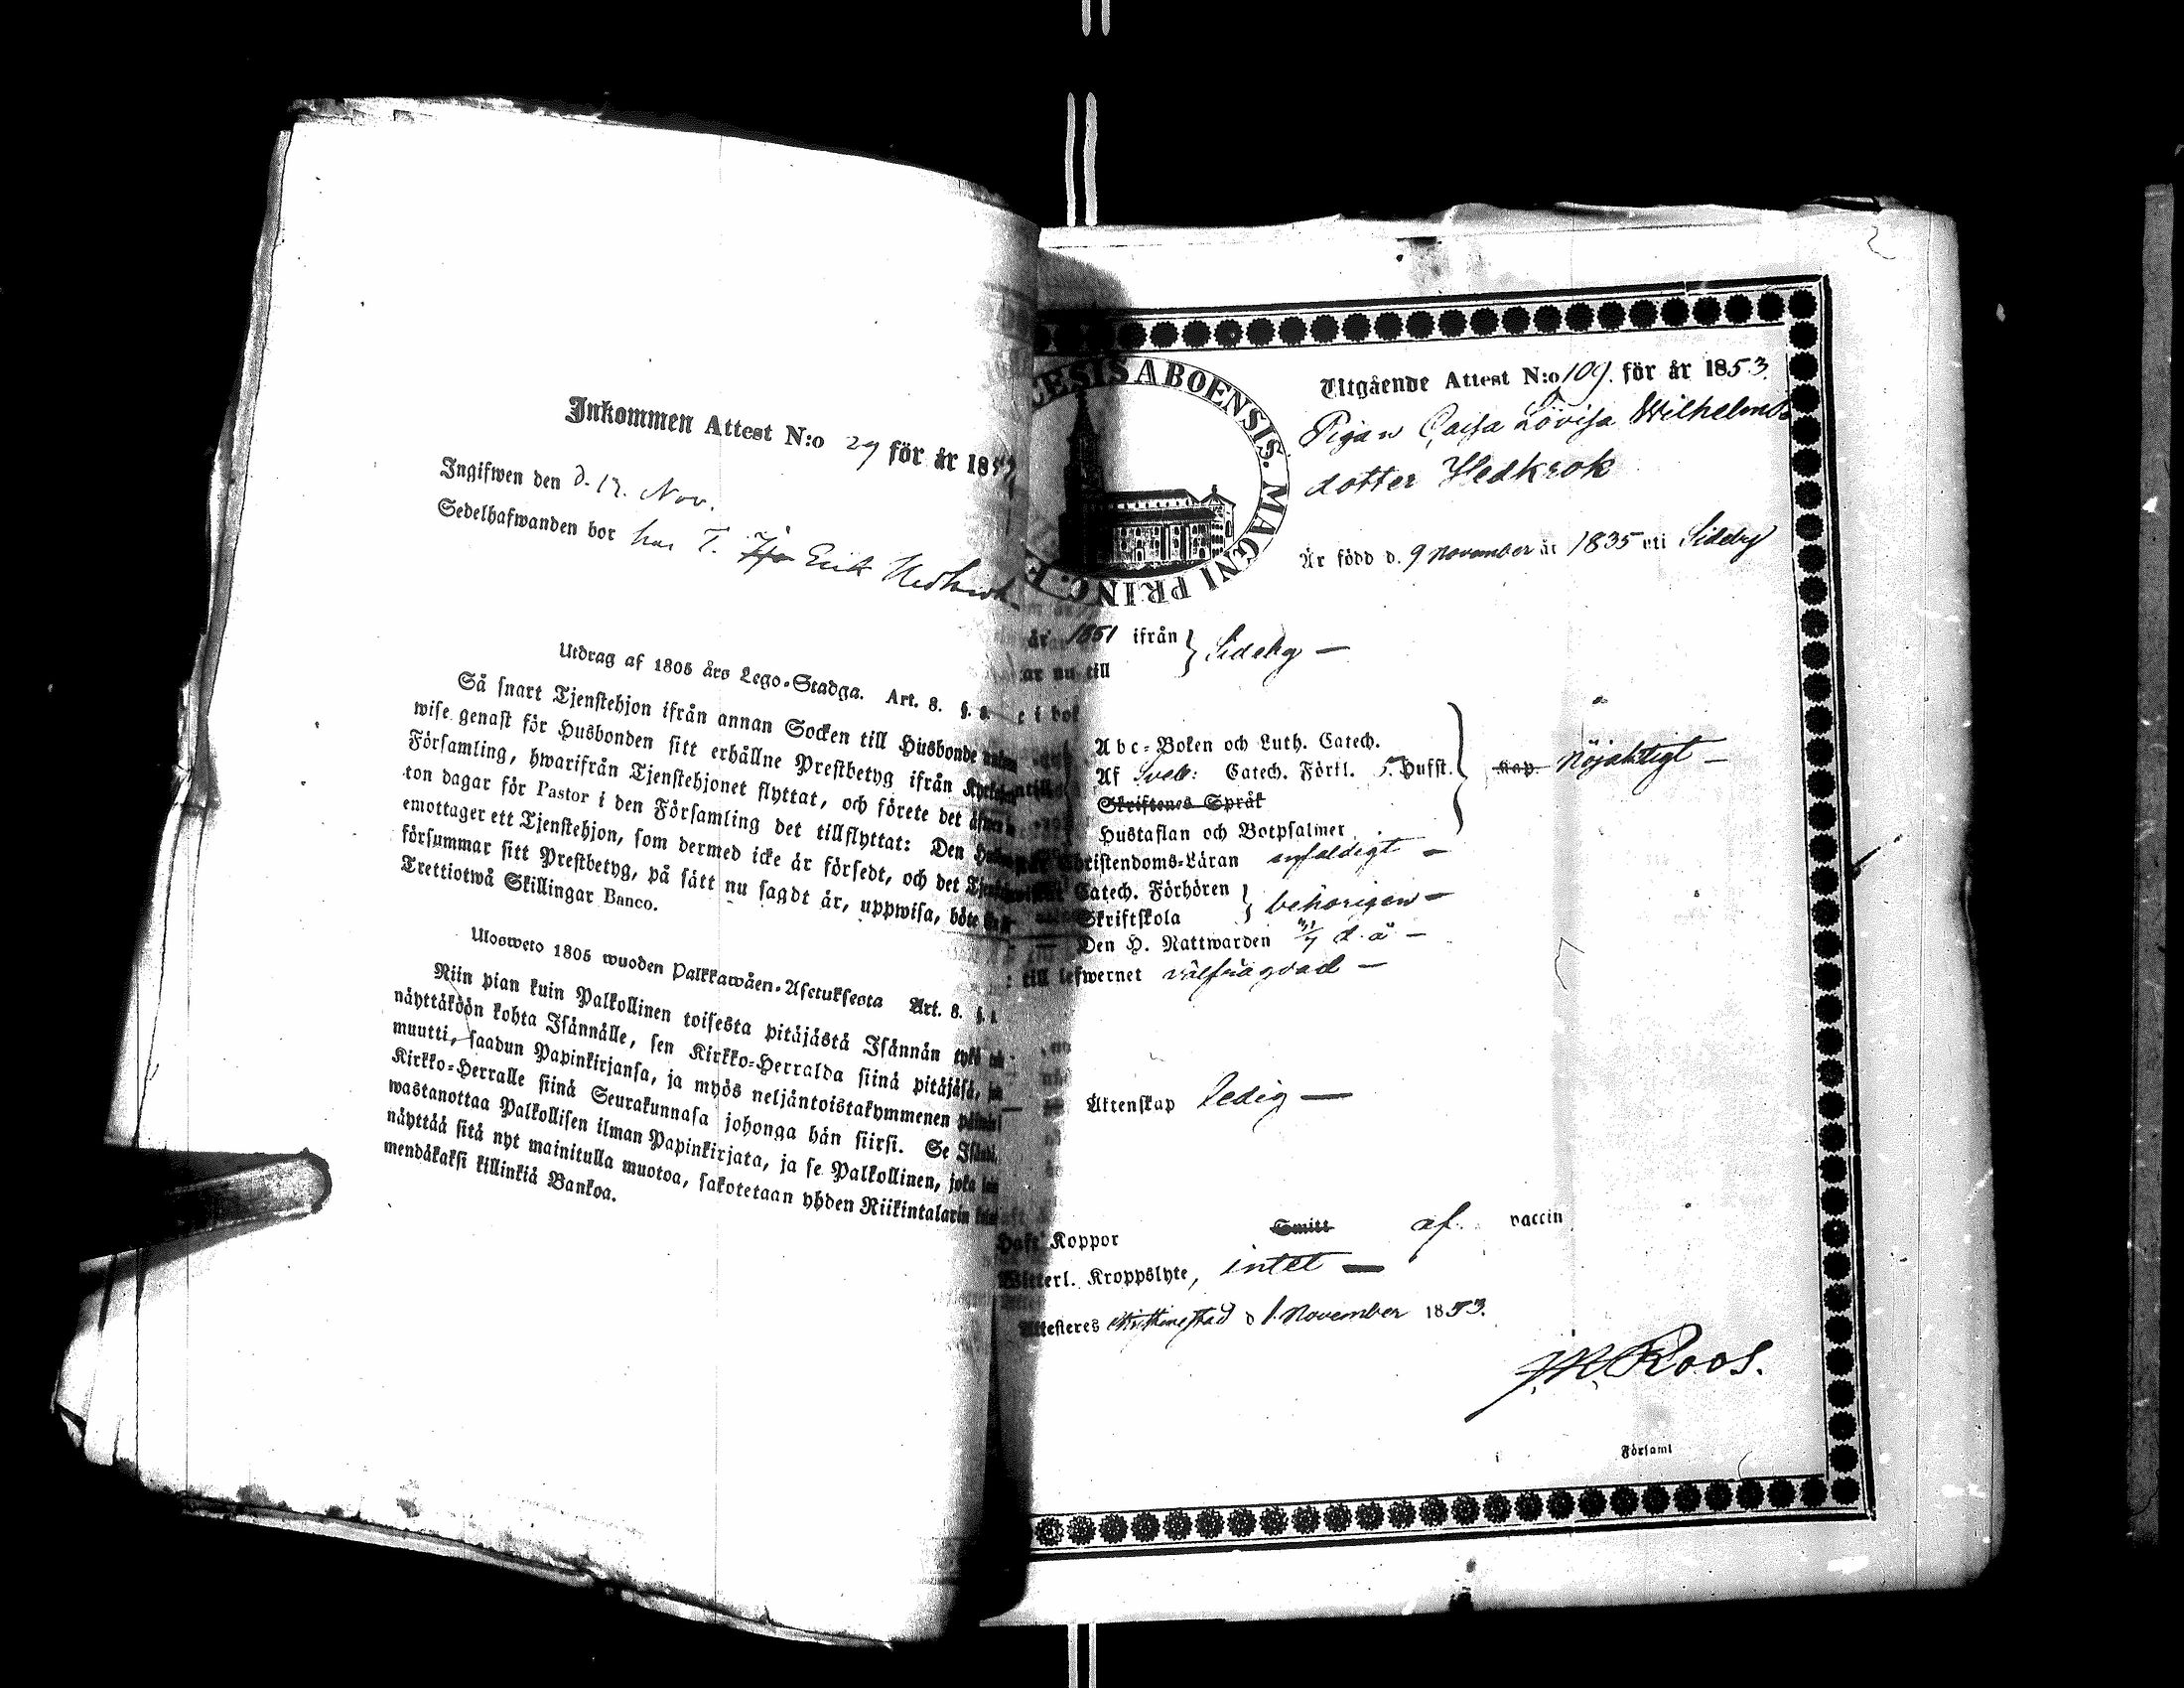 Inkommen Attest N:o 29 för år 185
Ingifwen den d. 12. Nov.
Sedelhafwanden bor hos T. Erik Hedkrok.
Utdrag af 1805 års Lego-Stadga. Art. 8. §.
Så snart Tjenstehjon ifrån annan Socken till Husbonde
wise genast för Husbonden sitt erhållne Prestbetyg ifrån
Församling, hwarifrån Tjenstehjonet flyttat, och förete det
ton dagar för Pastor i den Församling det tillflyttat: Den
emottager ett Tjenstehjon, som dermed icke är försedt, och det
försummar sitt Prestbetyg, på sätt nu sagdt är, uppwisa, böte
Trettiotwå Skillingar Banco.
Ulosweto 1805 wuoden Palkkawäen-Asetuksesta Art. 8. §.
Niin pian kuin Palkollinen toisesta pitäjästä Isännän tykö
näyttäköön kohta Isännälle, sen Kirkko-Herralda siinä pitäjäsä,
muutti, saadun Papinkirjansa, ja myös neljäntoistakymmenen
Kirkko-Herralle siinä Seurakunnasa johonga hän siirsi. Se
wastanottaa Palkollisen ilman Papinkirjata, ja se Palkollinen, joka
näyttää sitä nyt mainitulla muotoa, sakotetaan yhden Riikintalarin
mendäkaksi killinkiä Bankoa.
CESIS ABOENSIS. MAGNI PRINC. F
Utgående Attest N:o 109. för år 1853.
Pigan Caisa Lovisa Wilhelms
dotter Hedkrok
Är född d. 9 November år 1835 uti Sideby
år 1851 ifrån
Sideby —
ar nu till
Abc-Boken och Luth. Catech.
Af Sveb: Catech. Förkl. 5. Hufst.
nöjaktigt —
Skriftenes Språk
Hustaflan och Botpsalmer
Christendoms-Läran enfaldigt —
Catech. Förhören
Skriftskola
behörigen —
Den H. Nattwarden d. å —
: till lefwernet välfrägdad —
Äktenskap ledig —
Haft Koppor Smitt af vaccin
Witterl. Kroppslyte, intet —
Attesteres Christinestad d 1 November 1853.
Roos.
Församl